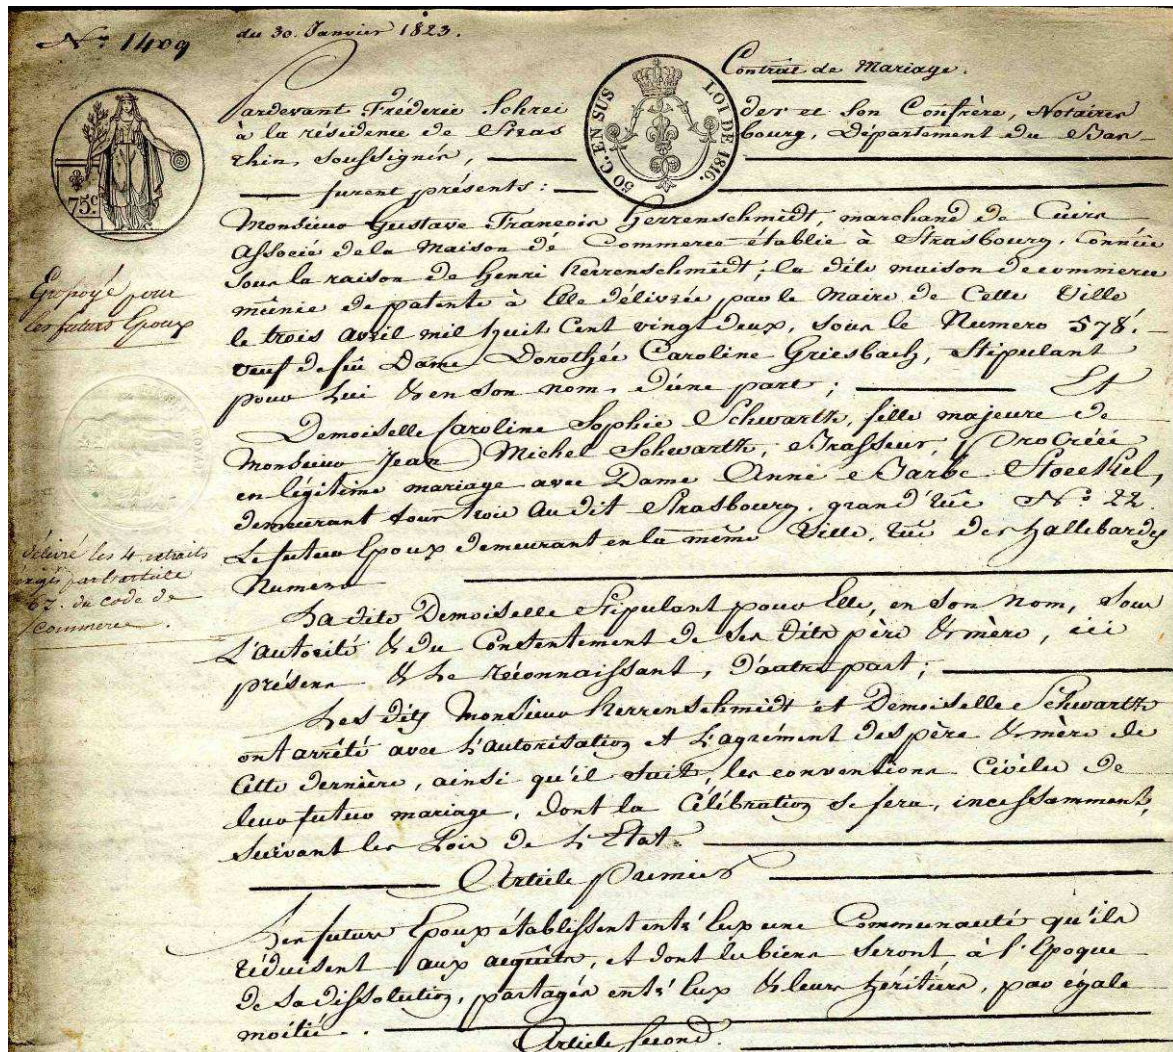 N.º 1409
du 30. Janvier 1823.
Contrat de Mariage.
50 C. EN SUS
LOI DE 1816.
75 c.
Pardevant Fréderic Schrei der et Son Confrère, Notaires
à la résidence de Stras bourg, Département du Bas-
rhin, soussignés,
furent présents :
Monsieur Gustave François Herrenschmidt, marchand de Cuirs
Associé de la Maison de Commerce établie à Strasbourg, Connüe
sous la raison de Henri Herrenschmidt; la dite maison de commerce
münie de patente à Elle délivrée par le Maire de Cette Ville
le trois avril mil huit Cent vingt deux, sous le Numero 578.
veuf de fû Dame Dorothée Caroline Griesbach, Stipulant
pour Lui & en son nom, d'une part; Et
Demoiselle Caroline Sophie Schwartz, fille majeure de
Monsieur Jean Michel Schwartz, Brasseur, Procréée
en légitime mariage avec Dame Anne Barbe Stoeckel,
demeurant tous trois au dit Strasbourg, grand'rüe N.º 22.
Le futur Epoux demeurant en la même Ville, rüe des hallebardes
Numero
La dite Demoiselle Stipulant pour Elle, en son nom, sous
L'autorité & du Consentement de ses dits père & mère, ici
présens & le réconnaissant, D'autre part;
Les dits Monsieur Herrenschmidt et Demoiselle Schwartz
ont arrêté avec L'autorisation et L'agrément des père & mère de
Cette dernière, ainsi qu'il suit, les conventions Civiles de
leur futur mariage, dont la Célébration se fera, incessamment,
suivant les Lois de L'Etat.
Article premier
Les futurs Epoux établissent entr'Eux une Communauté qu'ils
réduisent aux acquêts, et dont les biens seront à l'Epoque
de sa dissolution, partagés entr'Eux & leurs héritiers, par égale
moitié.
Article Second.
pour
les futurs Epoux
délivré les 4 extraits
exigés par l'article
67. du code de
Commerce.